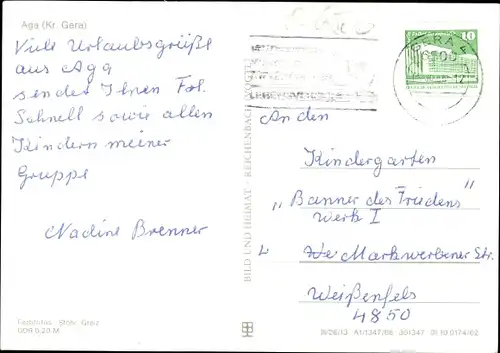 Aga (Kr. Gera)
Viele Urlaubsgrüße
aus Aga
sendet Ihnen Frl.
Schnell sowie allen
Kindern meiner
Gruppe
Nadine Brenner
BILD UND HEIMAT REICHENBACH (VOGTL)
10
GERA 4
6500
An den
Kindergarten
„Banner des Friedens"
Werk I
Markwerbener Str.
Weißenfels
4850
Fotohaus Stöhr, Greiz
DDR 0,20 M
III/26/13 A1/1347/86 301347 01 10 0174/02